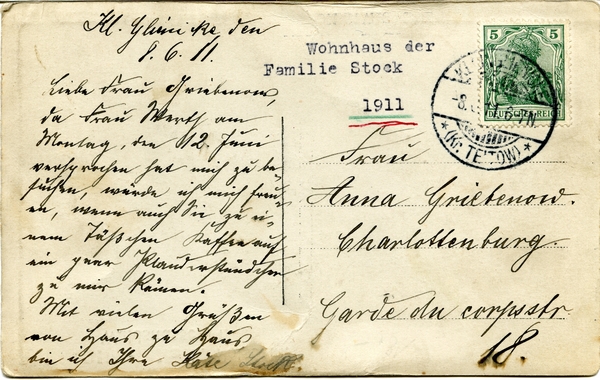 Kl. Glienicke, den
8.6.11.
Liebe Frau Griebenow,
da Frau Werth am
Montag, den 12. Juni
versprochen hat mich zu be-
suchen, würde ich mich freu-
en, wenn auch Sie zu ei-
nem Täßchen Kaffee auf
ein paar Plauderstündchen
zu mir kämen.
Mit vielen Grüßen
von Haus zu Haus
bin ich Ihre Käte Stock.
Wohnhaus der
Familie Stock
1911
5 5
DEUTSCHES REICH
*(Kr. TELTOW)*
Frau
Anna Griebenow.
Charlottenburg.
Garde du corpsstr.
18.